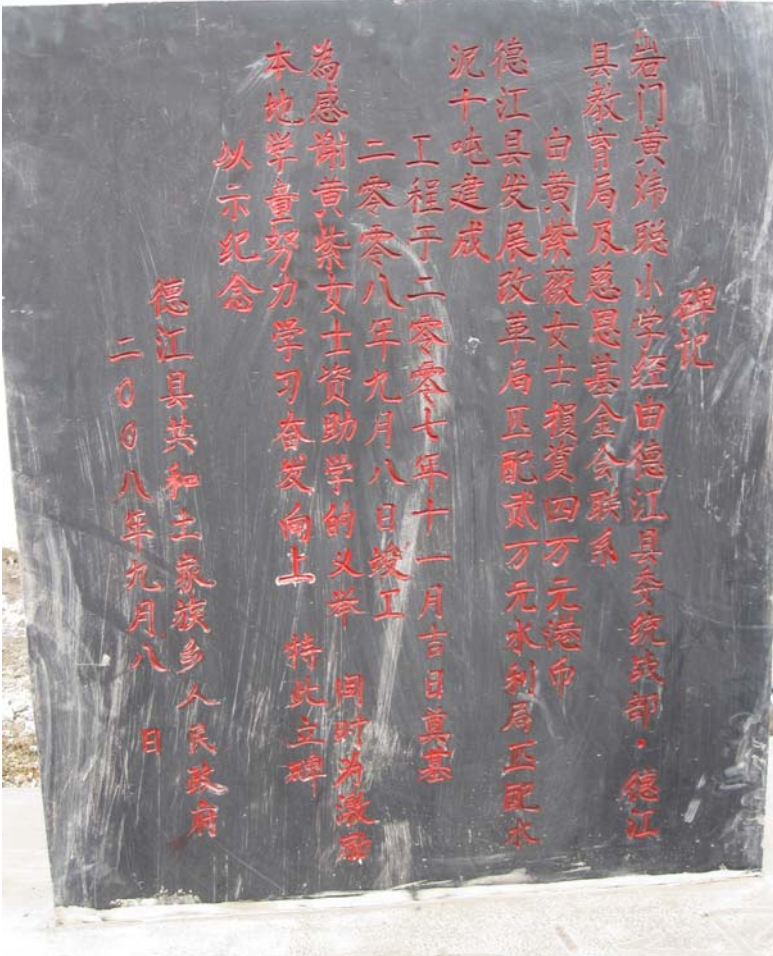 碑记
岩门黄炜聪小学经由德江县委统战部·德江
县教育局及慈恩基金会联系
白黄紫薇女士损资四万元港币
德江县发展改革局匹配贰万元水利局匹配水
泥十吨建成
工程于二零零七年十一月吉日奠基
二零零八年九月八日竣工
为感谢黄紫女士资助学的义举 同时为激励
本地学童努力学习奋发向上 特此立碑
以示纪念
德江县共和土家族乡人民政府
二00八年九月八 日